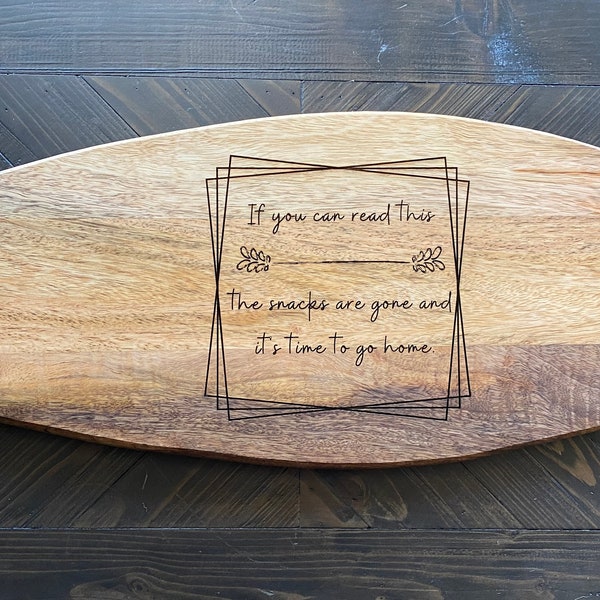 If you can read this
The snacks are gone and
it's time to go home.